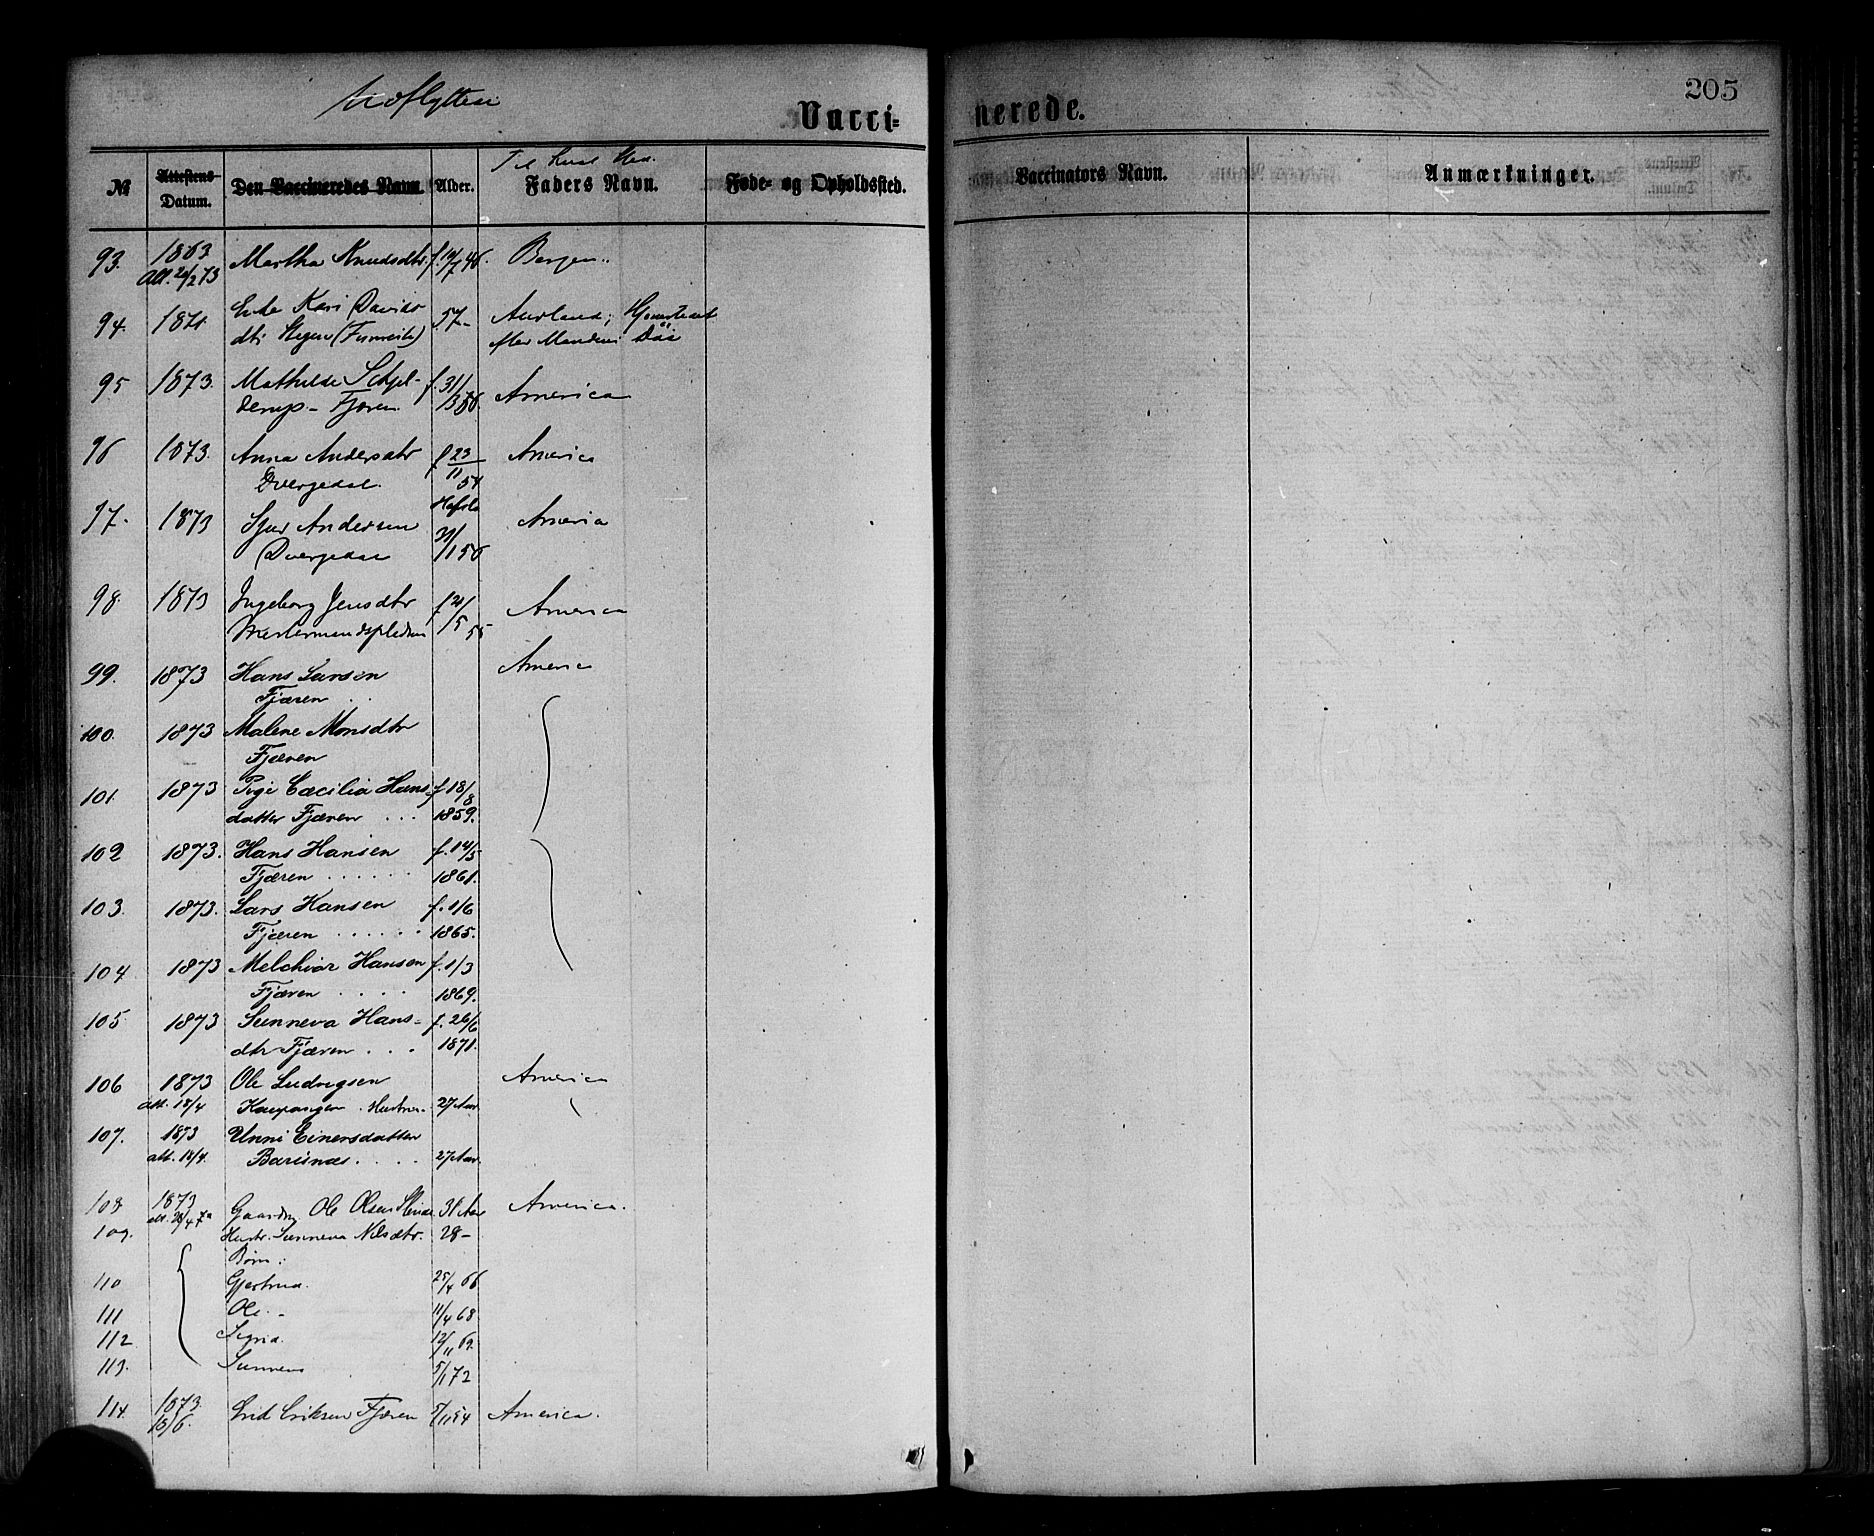 Udflyttede
Vacci- nerede.
205
Til hvad Sted.
№ Attestens Datum. Den Vaccineredes Navn. Alder. Faders Navn. Føde- og Opholdssted. Vaccinators Navn. Anmærkninger.
93. 1863 Martha Knudsdtr. f. 19/7 46. Bergen.
Att. 20/2 73
94. 1871. Enke Kari Davids 57 - Aurland; Hjemstedet
dtr Stegen (Fimreite) efter Manden
95 1873. Mathilde Schjel- f. 31/1 America
derup - Fjæren.
96 1873. Anna Andersdtr f 23/11 54 America
Dvergedal.
97. 1873 Sjur Andersen Hafslo America
Dvergedal 1 56
98. 1873 Ingeborg Jensdtr f 21/5 55 America
99. 1873 Hans Larsen America
Fjæren
100. 1873 Malene Monsdtr
Fjæren
101. 1873 Pige Cæcilia Hans- f. 18/8
datter Fjæren . . . 1859.
102 1873. Hans Hansen f. 14/5
Fjæren . . . . . . 1861.
103. 1873. Lars Hansen f. 1/6
Fjæren . . . . . . 1865.
104 1873 Melchior Hansen f. 1/3
Fjæren . . . . . 1869.
105. 1873 Sunneva Hans- f. 26/6
dtr Fjæren . . . 1871.
106 1873 Ole Ludvigsen America
att. 18/4 Kaupanger. Hustru - 27 Aar
107. 1873 Unni Einersdatter
att. 18/4. Bårsnæs . . . . 27 Aar.
108 1873 Gaardm Ole Olsen 31 Aar America.
att. 28/4 73
109. Hustr. Sunneva Nilsdtr. 28 -
Børn:
110 Gjertrud. 25/4 66
111 Ole. - 11/4 68
112 Sigrid. 12/11 69.
113. Sunneva 5/1 72
114. 1873 Eriksen Fjæren 5/11 54 America.
13/6.